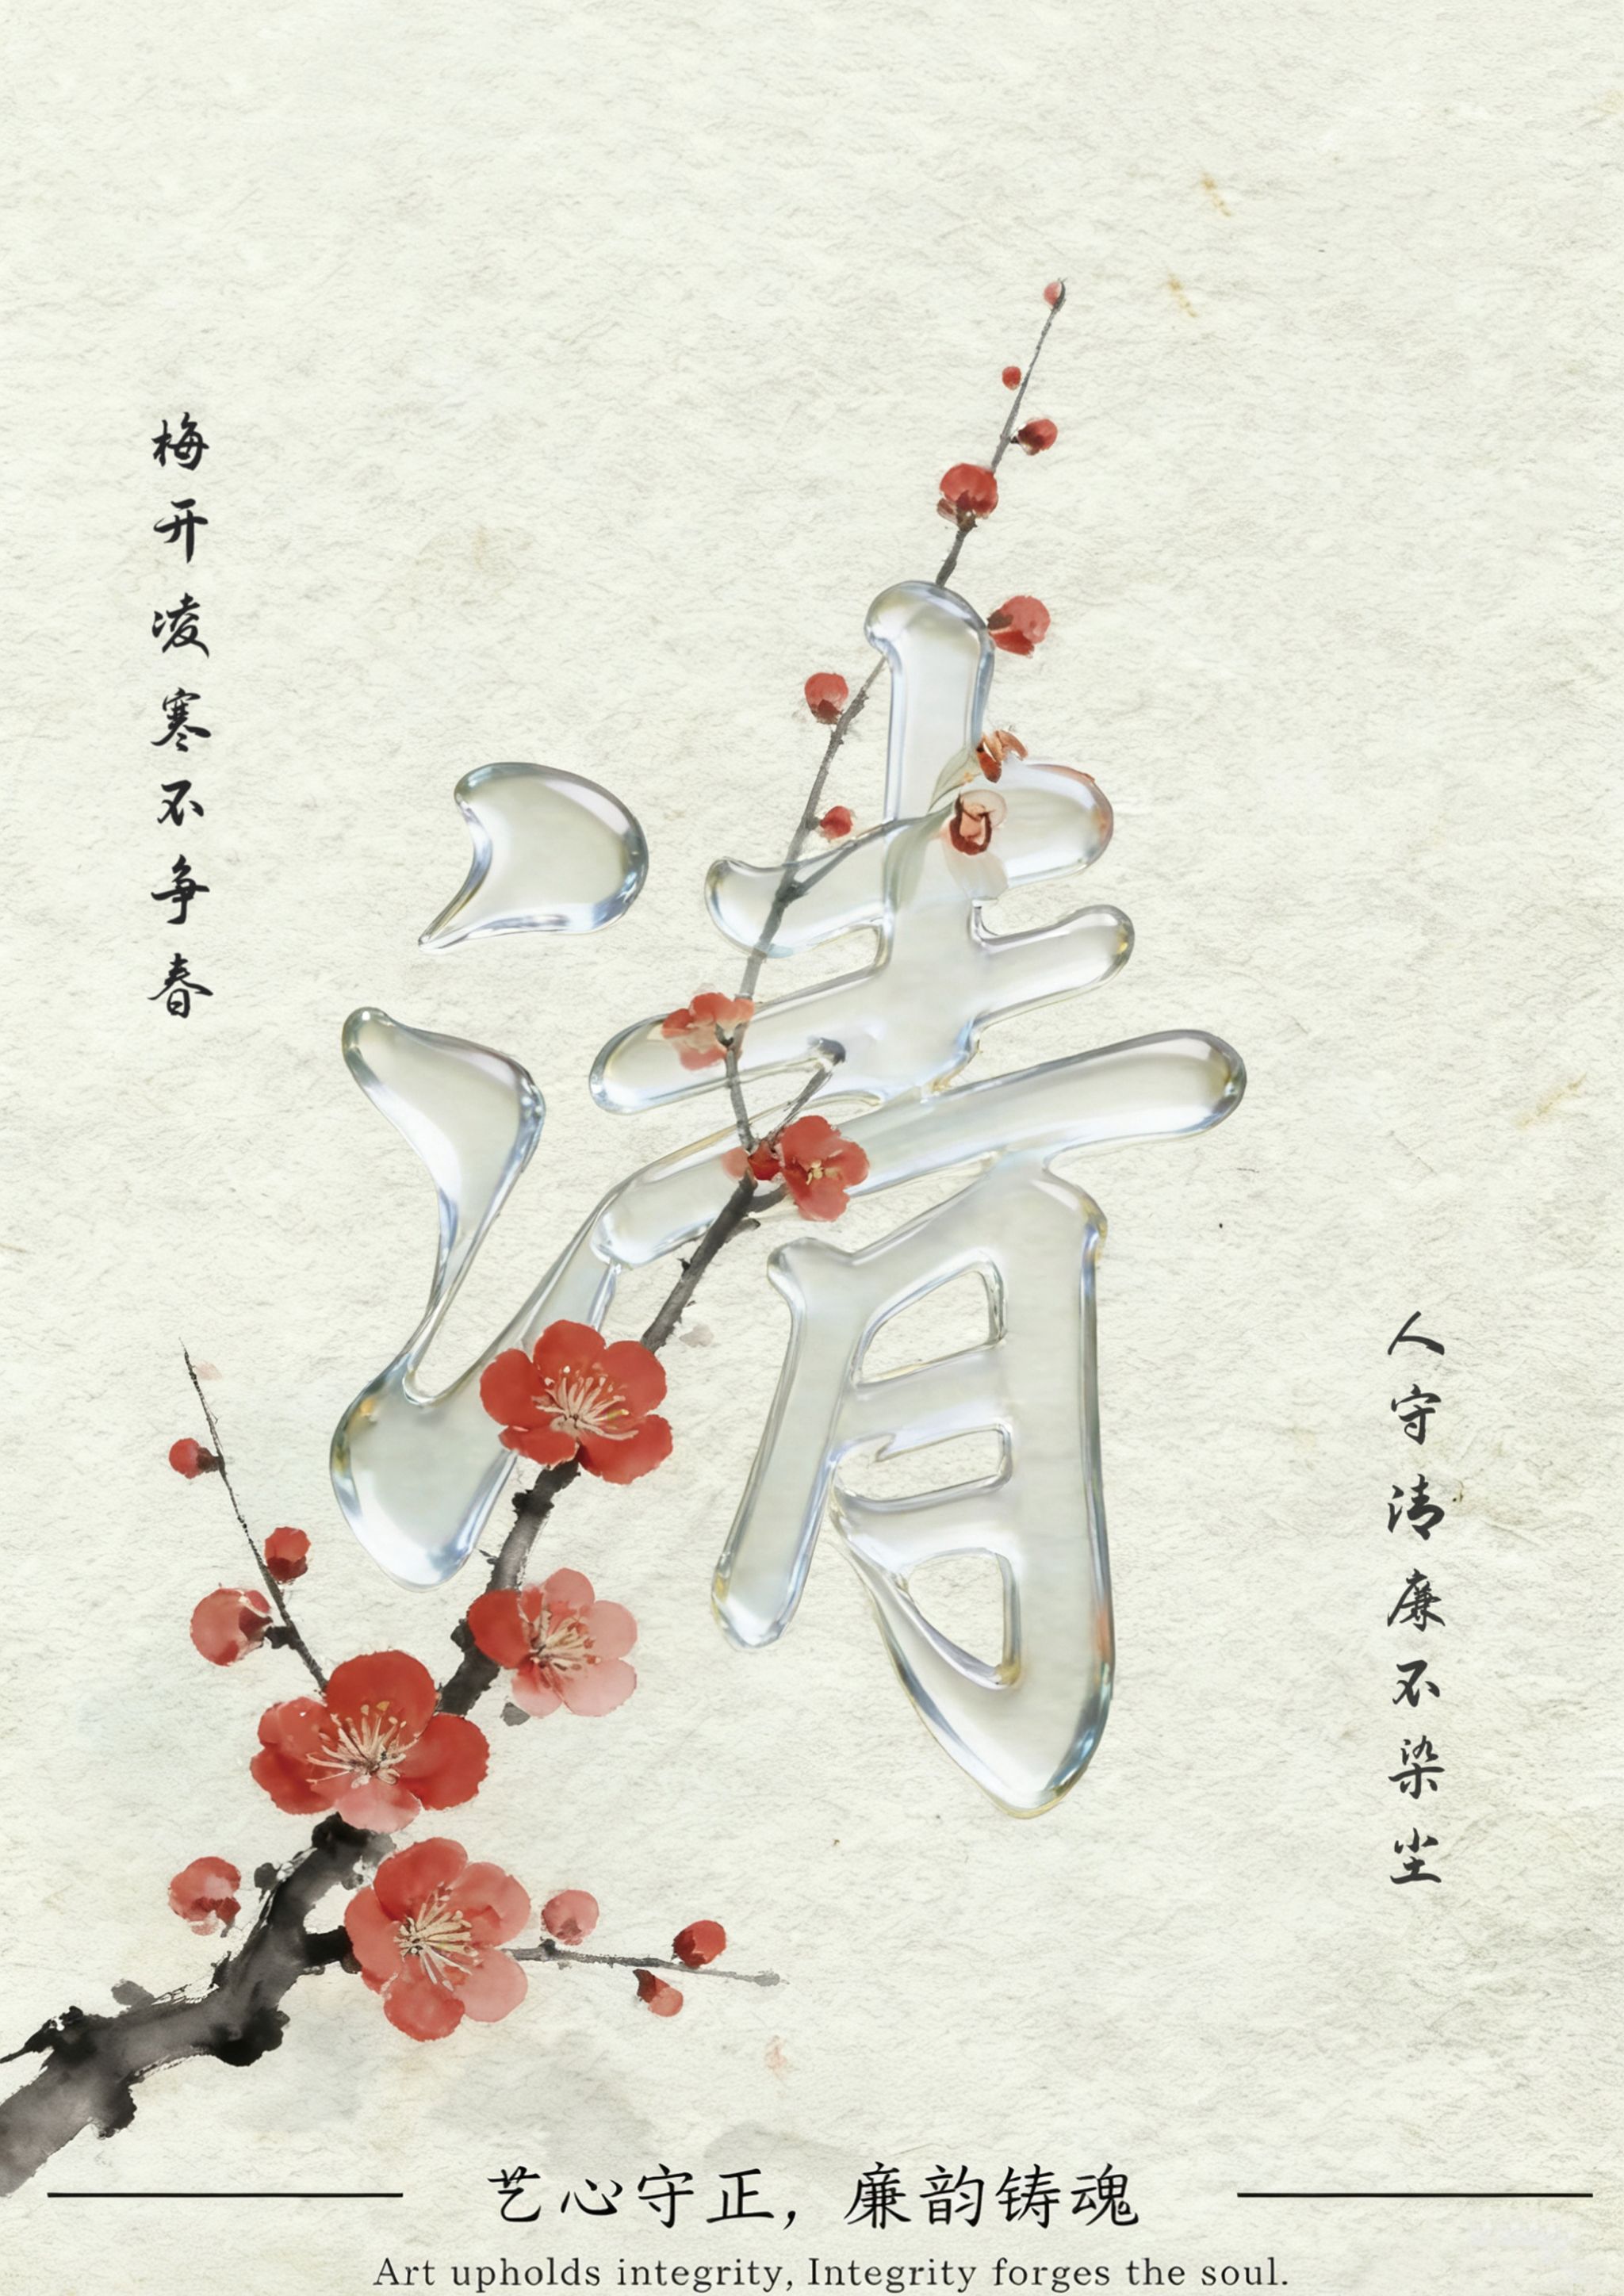 梅开凌寒不争春
清
人守清廉不染尘
艺心守正，廉韵铸魂
Art upholds integrity, Integrity forges the soul.